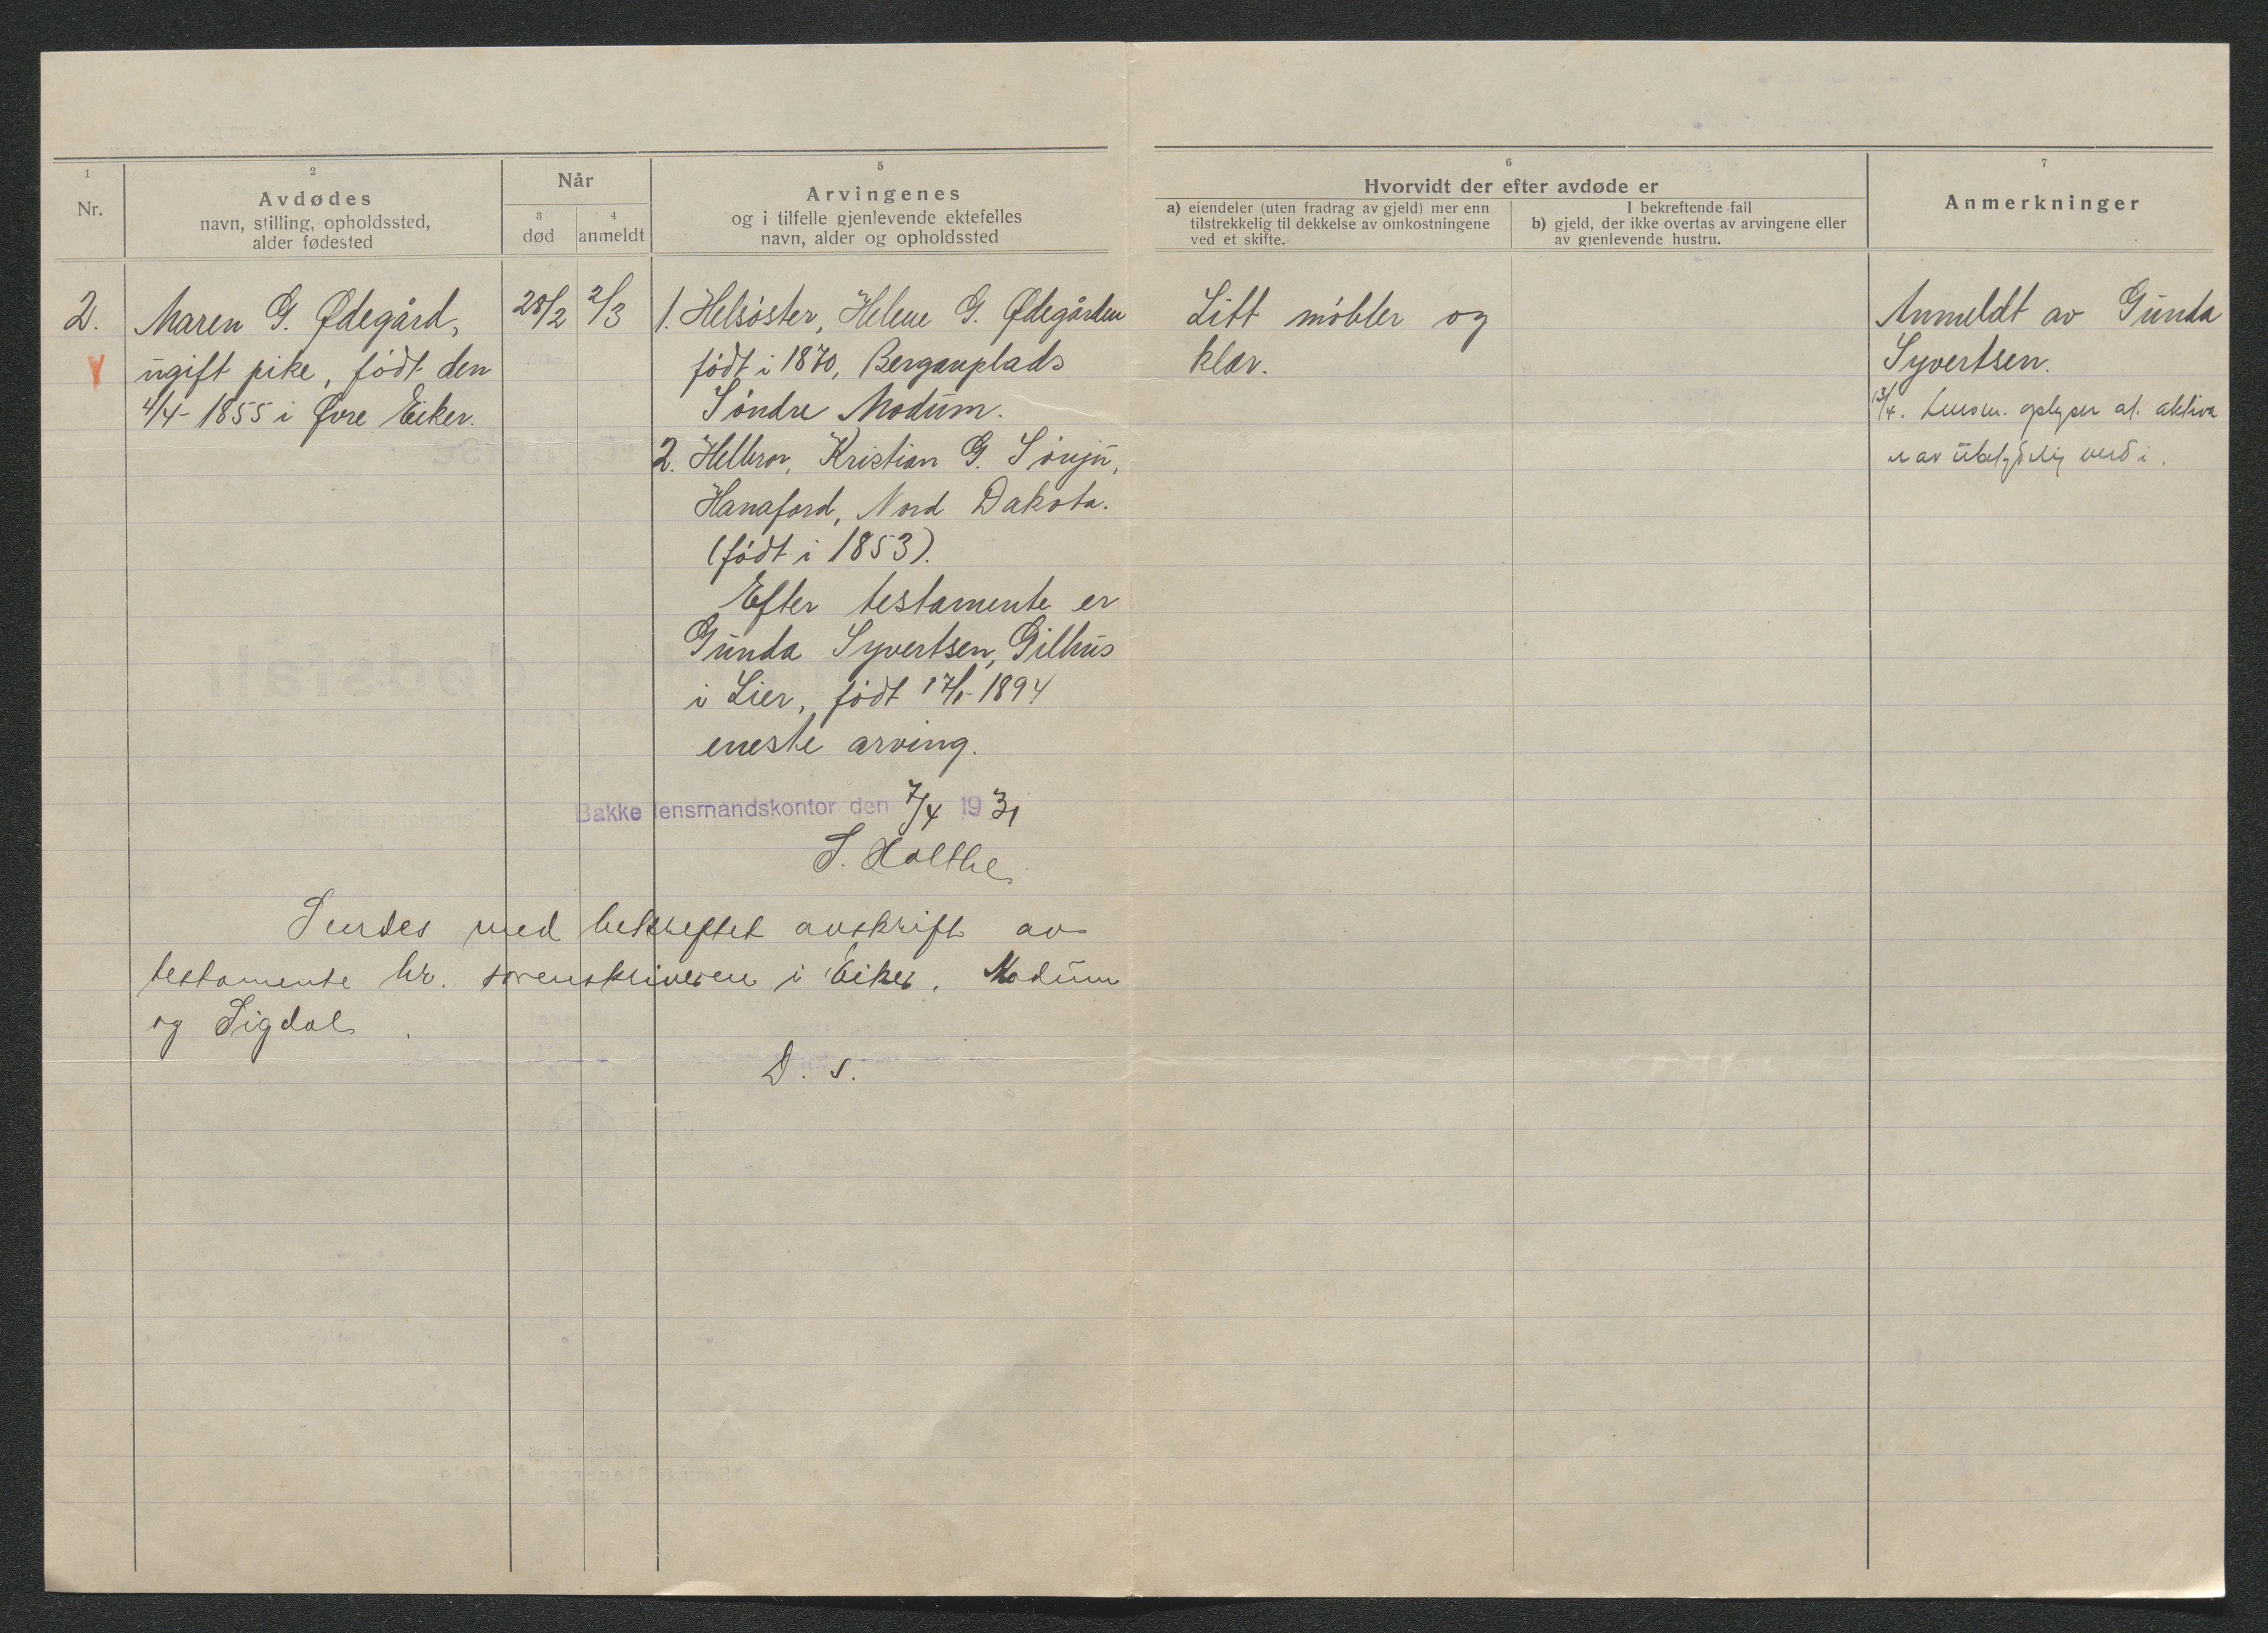 1
Nr.
2
Avdødes
navn, stilling, opholdssted,
alder fødested
Når
3
død
4
anmeldt
5
Arvingenes
og i tilfelle gjenlevende ektefelles
navn, alder og opholdssted
6
Hvorvidt der efter avdøde er
a) eiendeler (uten fradrag av gjeld) mer enn
tilstrekkelig til dekkelse av omkostningene
ved et skifte.
I bekreftende fall
b) gjeld, der ikke overtas av arvingene eller
av gjenlevende hustru.
7
Anmerkninger
2.
Maren G. Ødegård,
ugift pike, født den
4/4-1855 i Øvre Eiker.
28/2
2/3
1. Helsøster, Helene G. Ødegården
født i 1870, Berganplads
Søndre Modum.
2. Helbror, Kristian G.
Hanaford, Nord Dakota.
(født i 1853).
Efter testamente er
Gunda Syvertsen, Gilhus
i Lier, født 1894
eneste arving.
Bakke lensmandskontor den 7/4 1931
S. Holthe
Sendes med bekreftet avskrift av
testamente hr. sorenskriveren i Eiker, Modum
og Sigdal.
D. s.
Litt møbler og
klær.
Anmeldt av Gunda
Syvertsen.
13/4. Lensm. oplyser at aktiva
er av ubetydelig verdi.